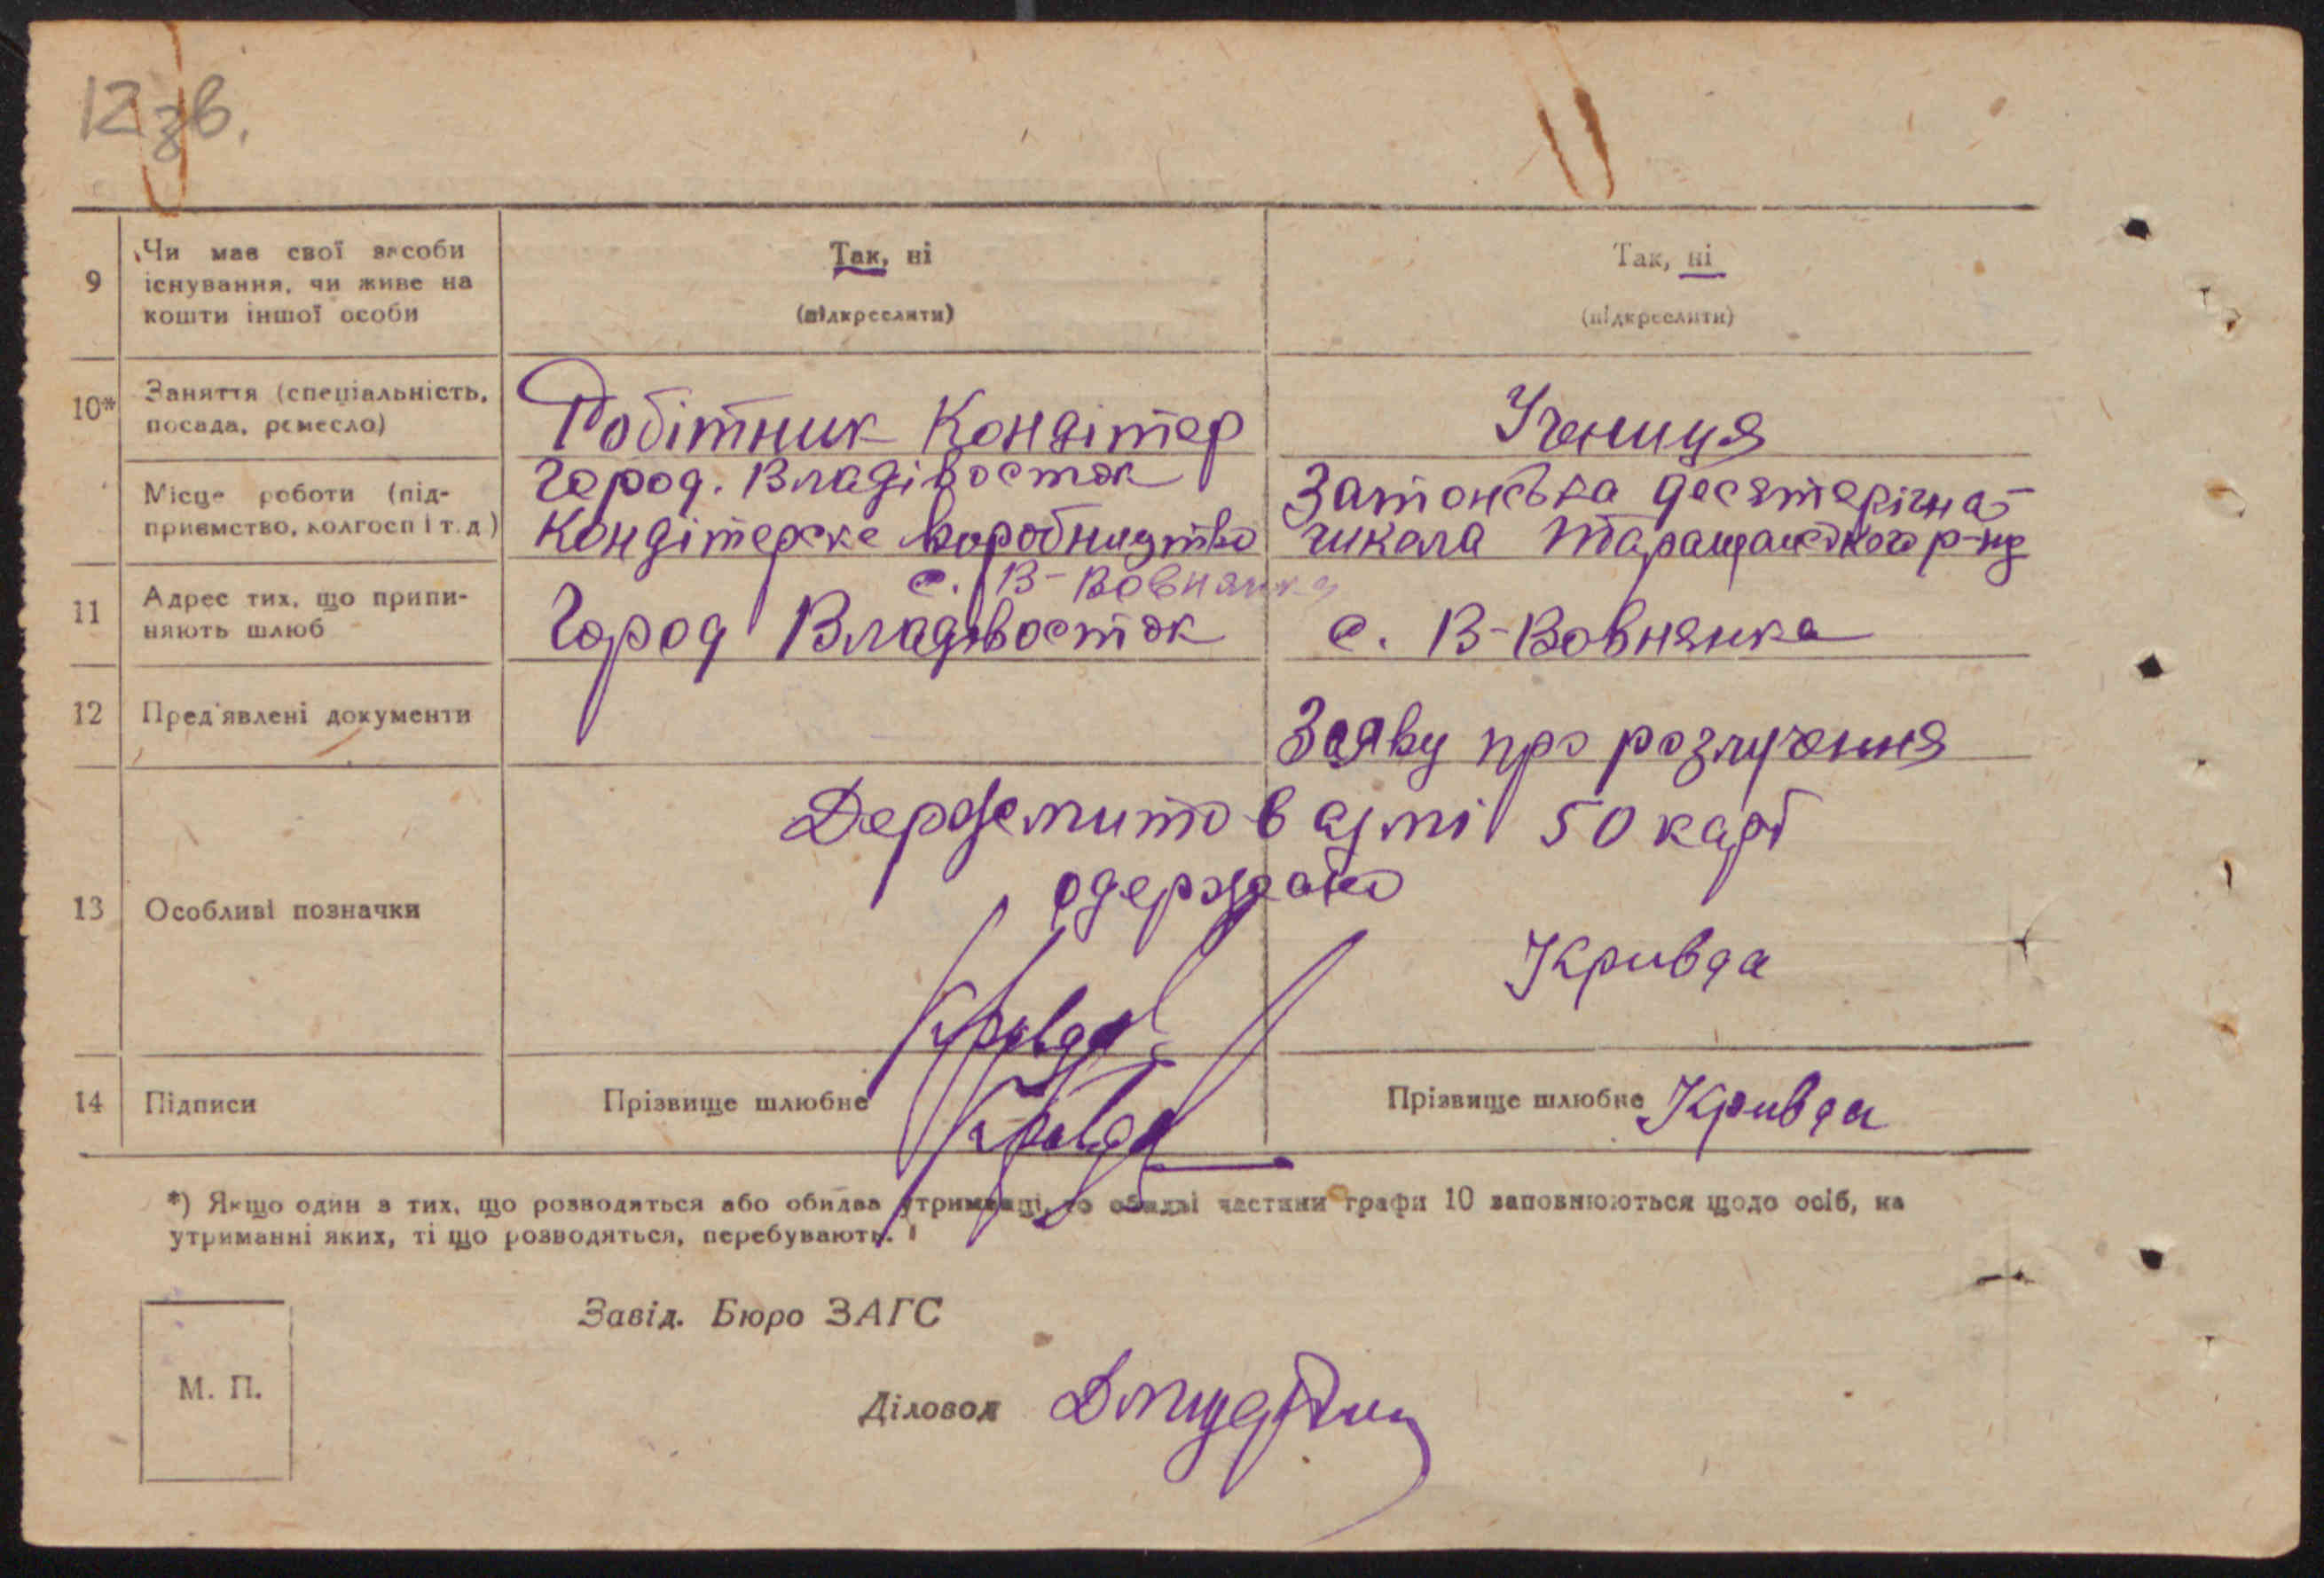 12 зв.
9 Чи має свої засоби існування, чи живе на кошти іншої особи
Так, ні (підкреслити)
Так, ні (підкреслити)
10* Заняття (спеціальність, посада, ремесло)
Робітник Кондітер
Учениця
Місце роботи (підприємство, колгосп і т. д)
Город. Владівосток
Кондітерске виробництво
Затонська десятерічна
школа Таращанского р-ну
11 Адрес тих, що припиняють шлюб
с. В-Вовнянка
Город Владівосток
с. В-Вовнянка
12 Пред'явлені документи
Заяву про розлучення
13 Особливі позначки
Держмито в сумі 50 карб
одержано
Кривда
Кривда
14 Підписи
Прізвище шлюбне Кривда
Прізвище шлюбне Кривда
*) Якщо один з тих, що розводяться або обидва утриманці, то обидві частини графи 10 заповнюються щодо осіб, на
утриманні яких, ті що розводяться, перебувають.
Завід. Бюро ЗАГС
М. П.
Діловод